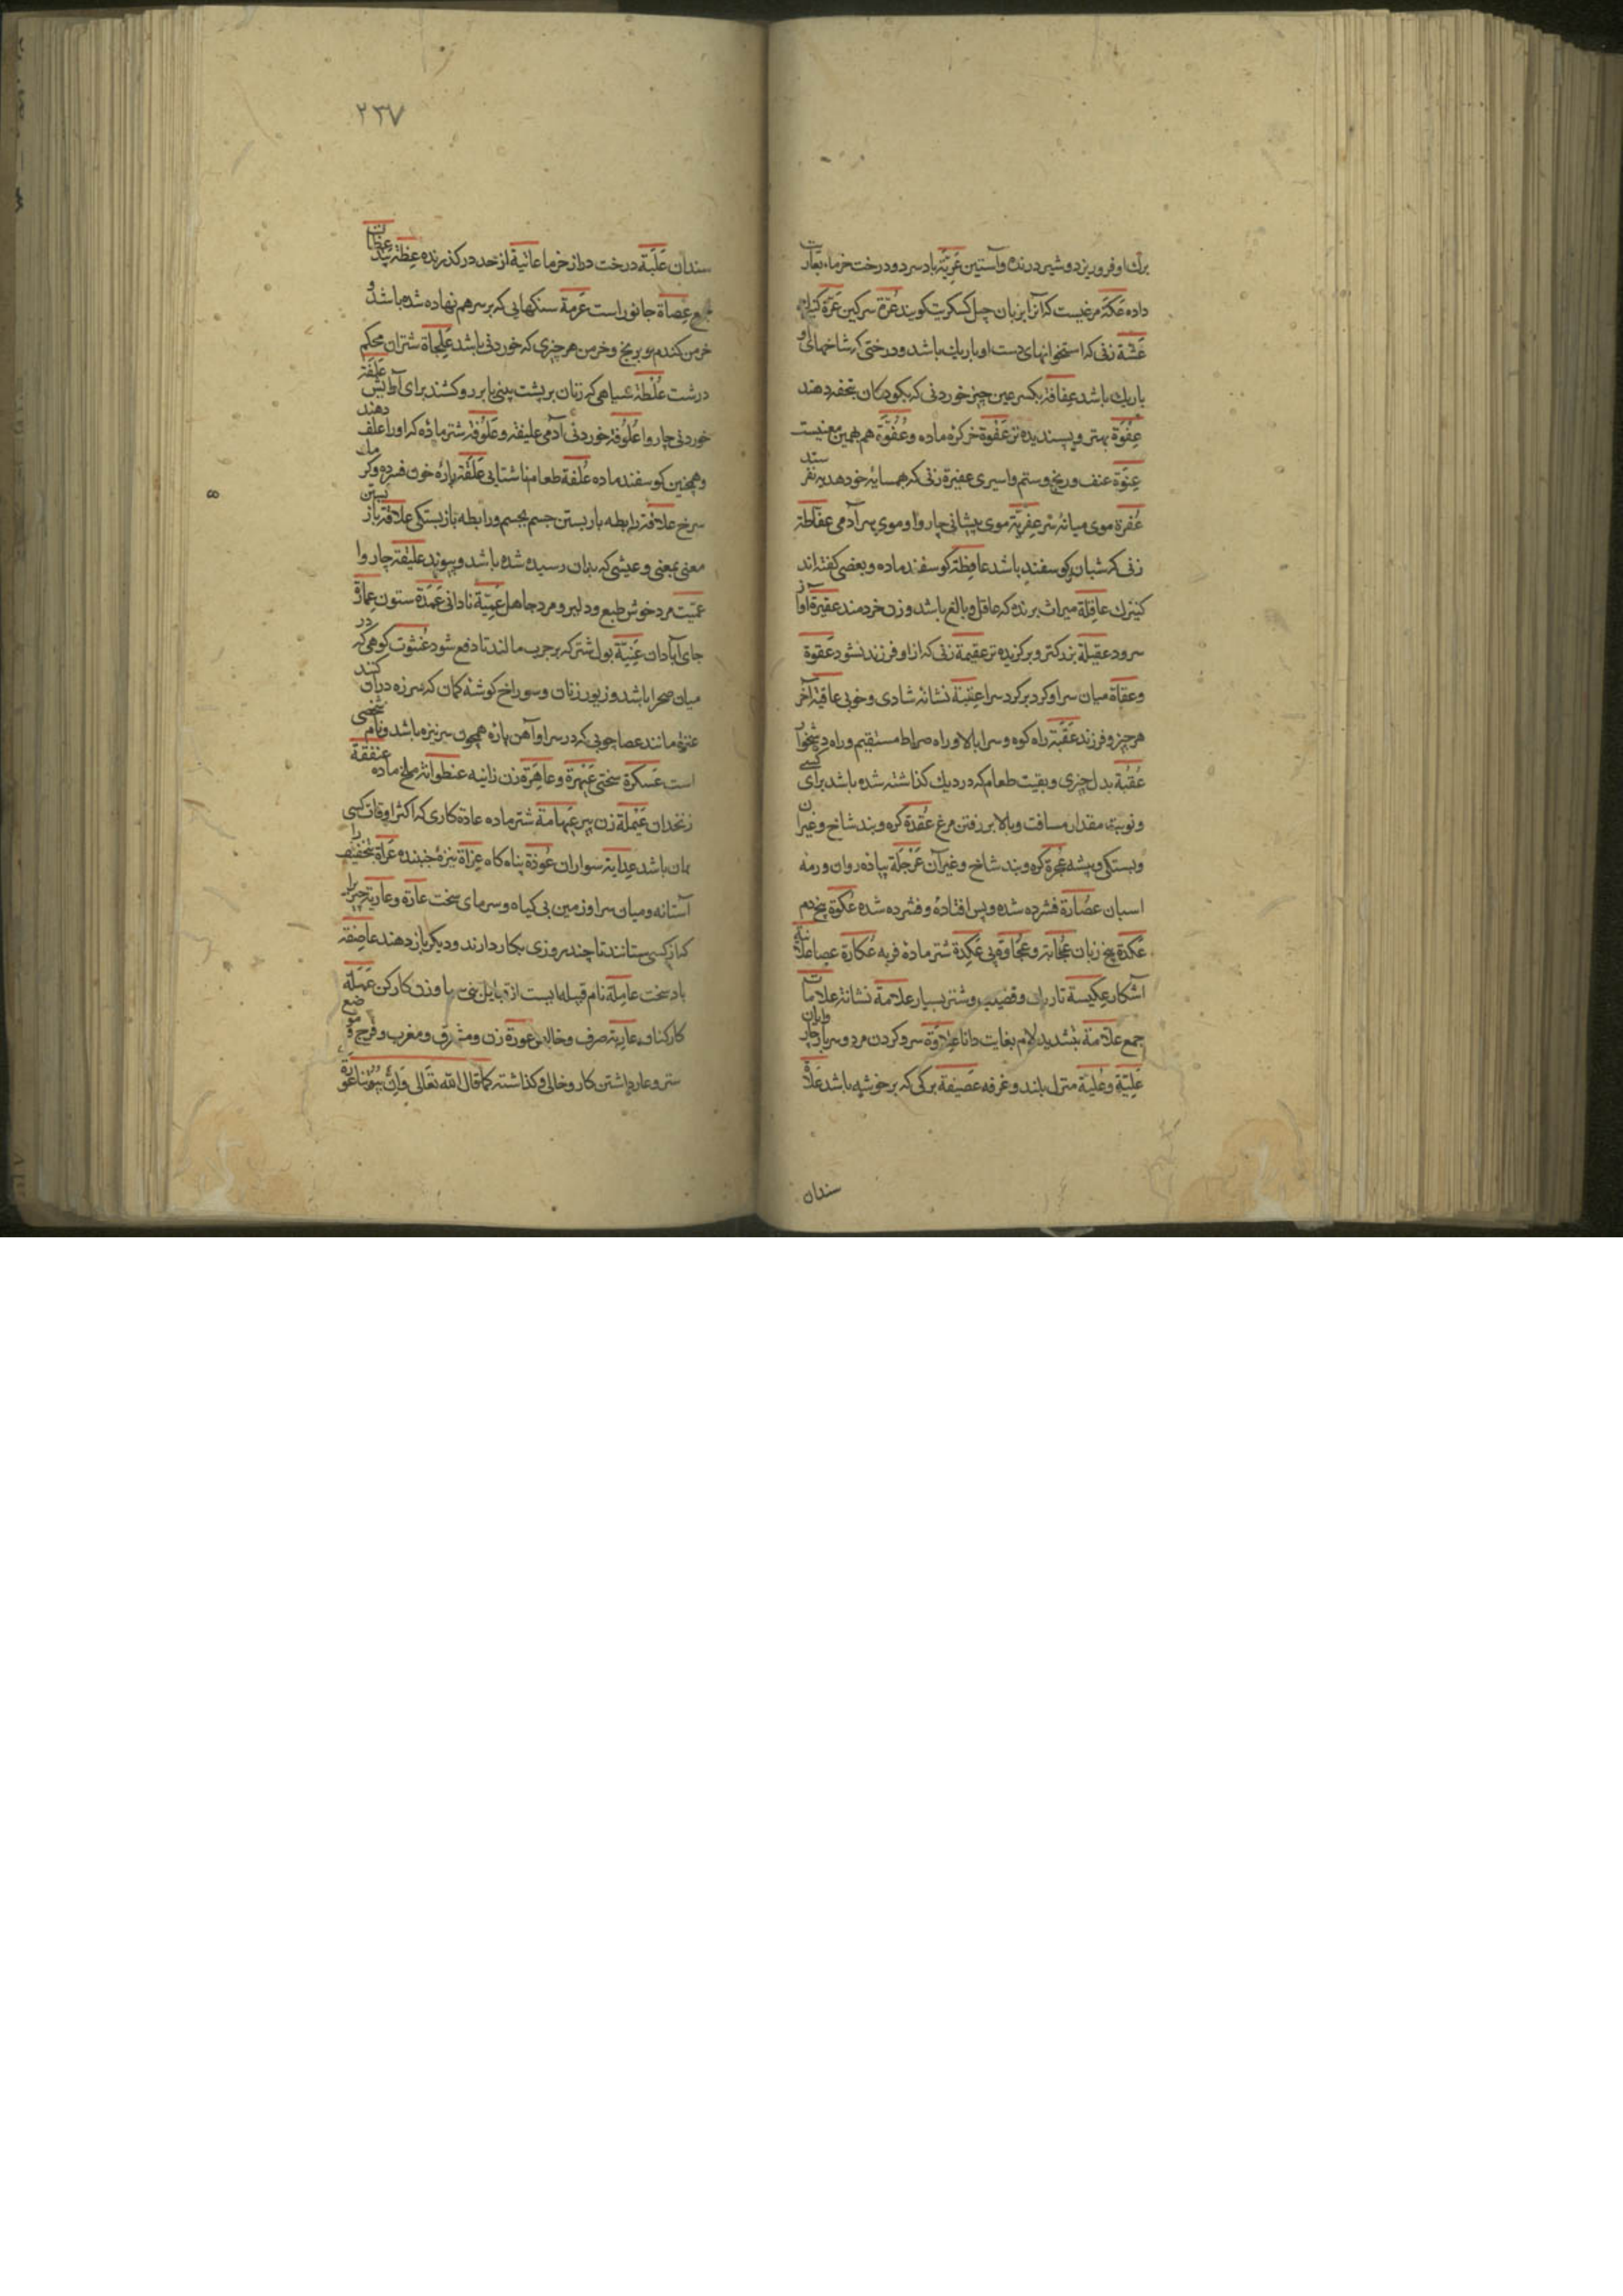 برك او فرو ريزد و شير درنده و آستين عَرِيَّة باد سرد و درخت خرماء بعاريت
داده عَكّة مرغيست كه آنرا بزبان چپل كسكريت كويند عُرّة سركين عَرّة
عَشّة زنى كه استخوانهاى دست او باريك باشد و درختى كه شاخهاى او
باريك باشد عِفافة بكسر عين چيز خوردنى كه بكودكان تحفه دهند
عِفْوَة بهتر و پسنديده تر عَفْوة خر كرّه ماده و عُفُوّة هم بهمين معنيست
عِنْوَة عنف و رنج و ستم و اسيرى عفيرة زنى كه همسايهٔ خود هديه نفرستد
عُفرة موى ميانهٔ سر عِفرِيَة موى پيشانى چاروا و موى سر آدمى عفّاطة
زنى كه شبان كوسفند باشد عافِطَة كوسفند ماده و بعضى كفته اند
كنيزك عاقِلة ميراث برنده كه عاقل و بالغ باشد و زن خردمند عقيرة آواز
سرود عقيلة بزركتر و بركزيده تر عقيمة زنى كه از او فرزند نشود عَقوة
و عقاة ميان سرا و كرد بر كرد سرا عِقبة نشانهٔ شادى و خوبى عاقبة آخر
هر چيز و فرزند عَقَبَة راه كوه و سرا بالا و راه صراط مستقيم و راه دشخوار
عُقبة بدل چيزى و بقيت طعام كه در ديك كذاشته شده باشد براى كسى
و نوبت مقدار مسافت و بالا بر رفتن مرغ عُقدة كره و بند شاخ و غير آن
و بستكى و پيشه عُجرة كره و بند شاخ و غير آن عَرْجَلَة پياده روان و رمهٔ
اسبان عصُارة فشرده شده و پس افتاده و فشرده شده عَكوة بيخ دم
عَكَدة بيخ زبان و عُجاوة پى عَكِدة شتر ماده فربه عُكازة عصا علانية
آشكار عكيسة تاريك و قضيب و شتر بسيار علامة نشانه علامات
جمع علاّمة بتشديد لام بغايت دانا عِلاوة سر و كردن مرد و سربار چاروايان
عِلِيّة و عُليّة منزل بلند و غرفه عَصيفة بركى كه بر خوشه باشد عَلاة
سندان
٢٣٧
سندان عَلَبَة درخت دراز خرما عاتية از حد در كذرنده عِظة پند عظات
جمع عِصاة جانور است عَرَمة سنكهايى كه بر سر هم نهاده شده باشد و
خرمن كندم و برنج و خرمن هر چيزى كه خوردنى باشد عَلِجاة شتران محكم
درشت عُلْطة سياهى كه زنان بر پشت بينى يا بر رو كشند براى آرايش عَلَفَة
خوردنى چاروا عُلُوفة خوردنى آدمى عليقة و عَلُوفة شتر ماده كه او را علف دهند
و همچنين كوسفند ماده عُلفة طعام ناشتايى عَلَقَة پارهٔ خون فسرده و كرمك
سرخ علاقة رابطه بار بستن جسم بجسم و رابطه باز بستكى علاقة باز بستن
معنى بمعنى و عيشى كه بدان رسيده شده باشد و پيوند عليقة چاروا
عمّيت مرد خوش طبع و دلير و مرد جاهل عُمِيّة نادانى عَمَدة ستون عِمارة
جاى آبادان عَنِيّة بول شتر كه بر جرب مالند تا دفع شود عُنثوت كوهى كه در
ميان صحرا باشد و زيور زنان و سوراخ كوشهٔ كمان كه سر زه در آن كنند
عنزة مانند عصا چوبى كه در سر او آهن پاره همچون سر نيزه باشد و نام شخصى
است عَسكَرة سختى عَيْهرة و عاهِرة زن زانيه عنظوانة ملخ ماده عنفقة
زنخدان عَيْملة زن پير عَيْهامة شتر ماده عادة كارى كه اكثر اوقات كسى
بران باشد سواران عُوذة پناه كاه عِزاة نيزهٔ جنبنده عَراة بتخفيف را
آستانه و ميان سرا و زمين بى كياه و سرماى سخت عارَة و عارية چيزيرا
كه از كسى ستانند تا چند روزى بكار دارند و ديكر باز دهند عاصِفة
باد سخت عامِلة نام قبيله ايست از قبايل يمن و زن كاركن عَمَلَة
كاركنان عارية صرف و خالص عورة زن و مشرق و مغرب و فرج و موضع
ستر و عار داشتن كار و خالى و كذاشته كما قال الله تعالى وَاِنَّ بُيُوتَنا عَوْرَة